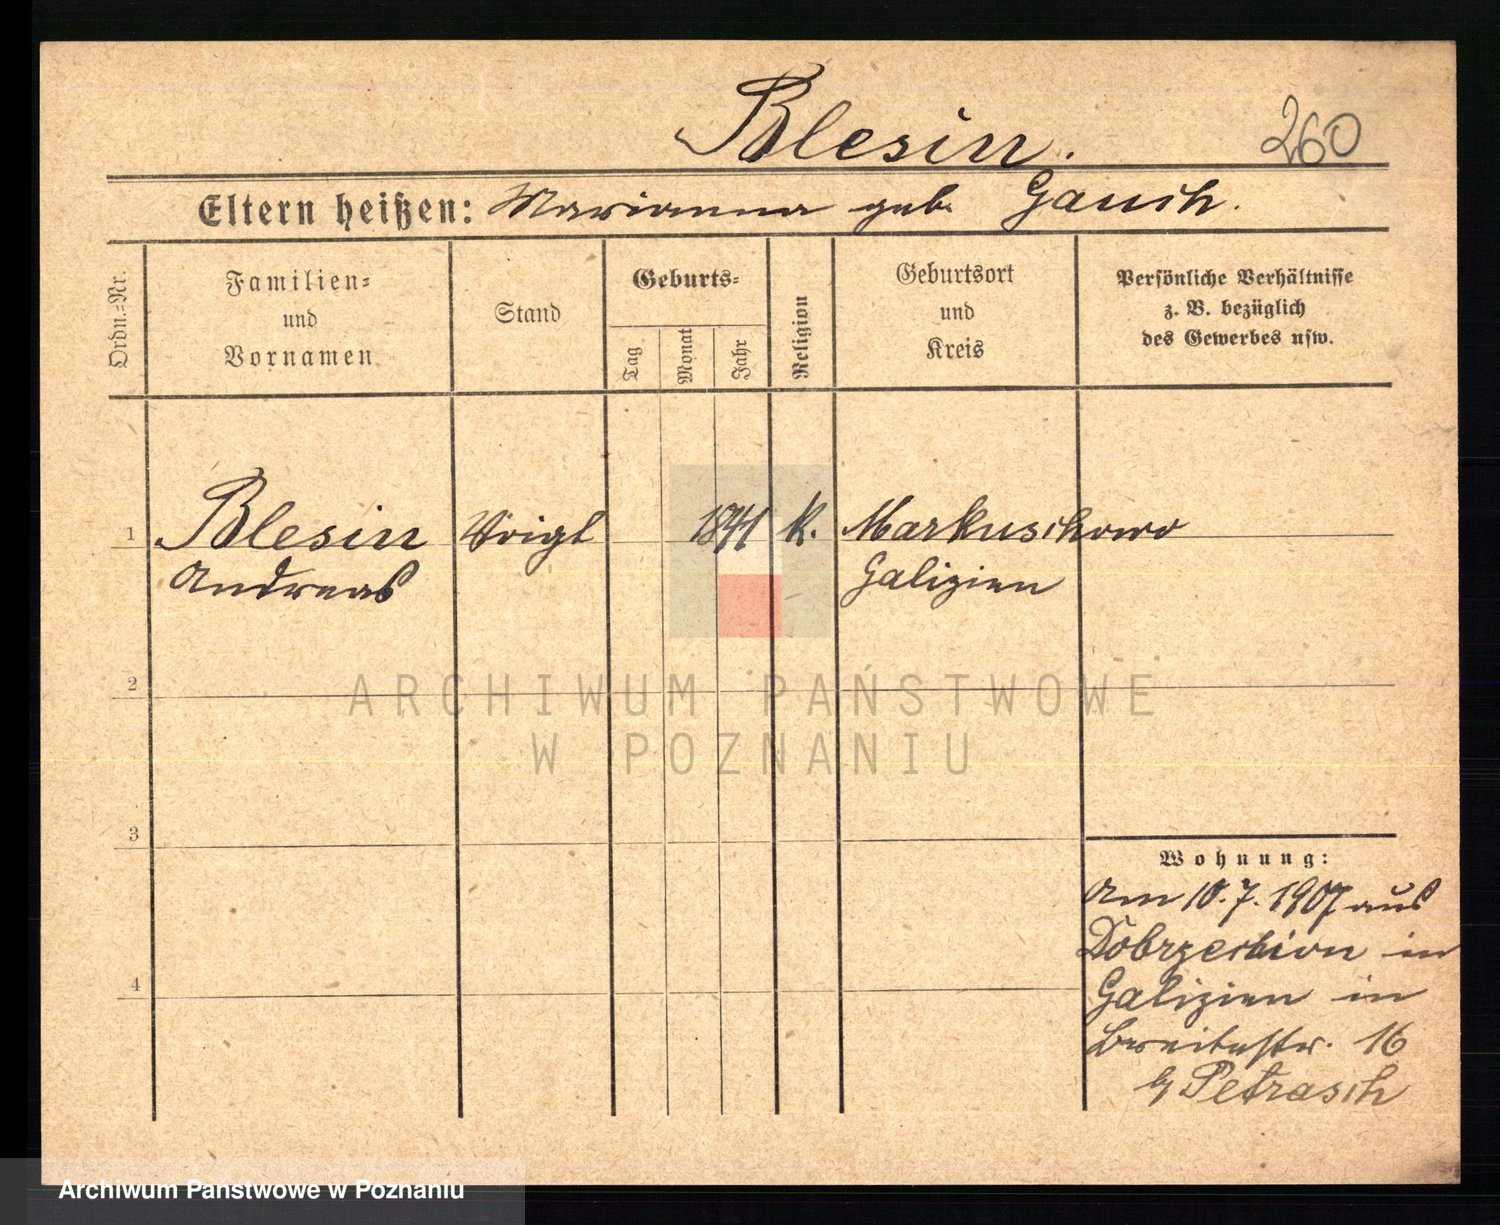 Blesin.
260
Eltern heißen: Marianna geb. Gausch.
Ordn.=Nr.
Familien=
und
Vornamen
Stand
Geburts=
Tag
Monat
Jahr
Religion
Geburtsort
und
Kreis
Persönliche Verhältnisse
z. B. bezüglich
des Gewerbes usw.
1
Blesin
Andreas
1841
K.
Markuschowo
Galizien
2
3
4
ARCHIWUM PAŃSTWOWE
W POZNANIU
Wohnung:
Am 10.7.1907 aus
in
Galizien in
Breitestr. 16
Petrasch
Archiwum Państwowe w Poznaniu